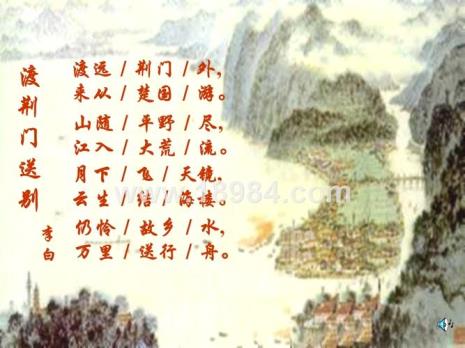 渡荆门送别
李白
渡远/荆门/外，
来从/楚国/游。
山随/平野/尽，
江入/大荒/流。
月下/飞/天镜，
云生/结/海楼。
仍怜/故乡/水，
万里/送行/舟。
www.18984.com